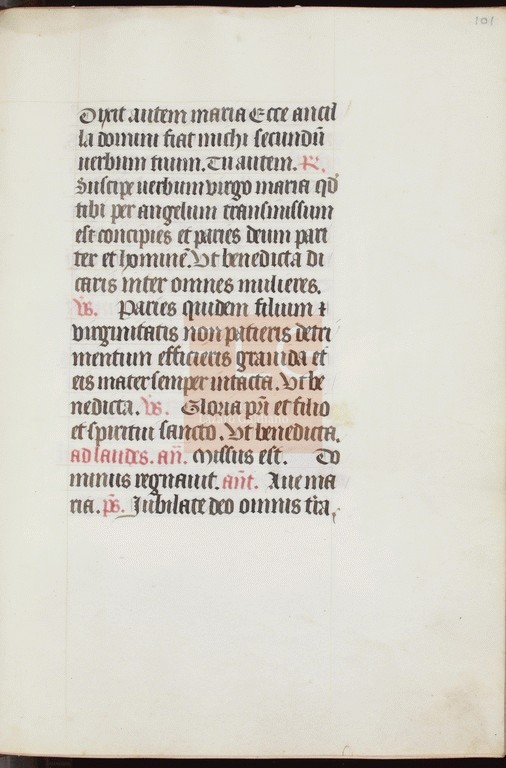 101
Dixit autem maria Ecce ancil
la domini fiat michi secundū
uerbum tuum. Tu autem. R̃.
Suscipe uerbum uirgo maria qd̓
tibi per angelum transmissum
est concipies et paries deum pari
ter et hominē. Vt benedicta di
caris inter omnes mulieres.
Vs̃. Paries quidem filium ⁊
uirginitatis non patieris detri
mentum efficieris grauida et
eis mater semper intacta. Vt be
nedicta. Vs̃. Gloria pr̄i et filio
et spiritui sancto. Vt benedicta.
ad laudes. añ. Missus est. Do
minus regnauit. añt. Aue ma
ria. ps̃. Iubilate deo omnis t̄ra.